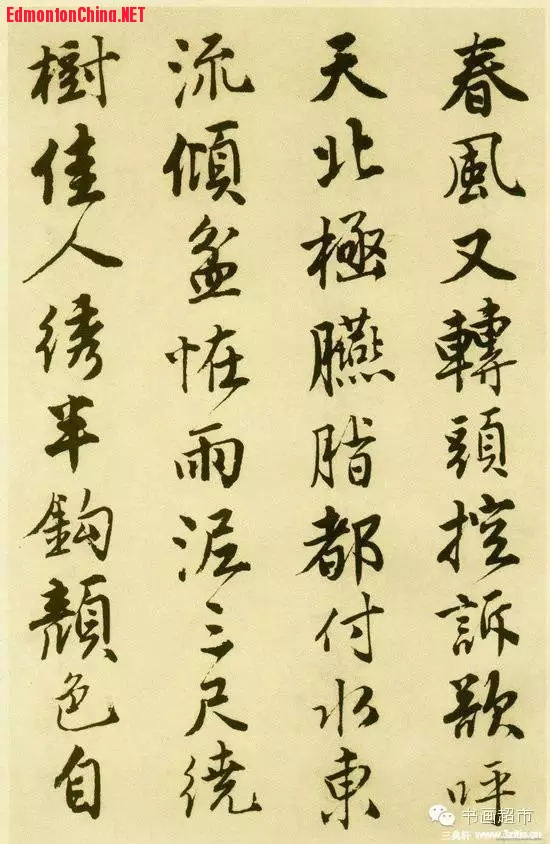 EdmontonChina.NET
春風又轉頭控訴欲呼
天北極臙脂都付水東
流傾盆恠雨泥三尺繞
樹佳人綉半鈎顏色自
书画超市